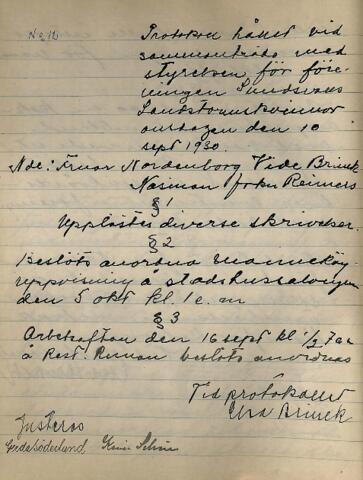 No 12
Protokoll hållet vid
sammanträde med
styrelsen för före-
ningen Sundsvalls
Landstormskvinnor
onsdagen den 10
sept 1930.
Nde: Fruar Nordenborg Vide Brinck
Näsman frkn Reimers
§ 1
Upplästes diverse skrivelser.
§ 2
Beslöts anordna mannekäng-
uppvisning å stadshussalongen
den 5 okt kl. 1 e. m
§ 3
Arbetsafton den 16 sept kl 1/2 7 em
å Rest. beslöts anordnas
Vid protokollet
Brinck
Justeras
Gerda Söderlund